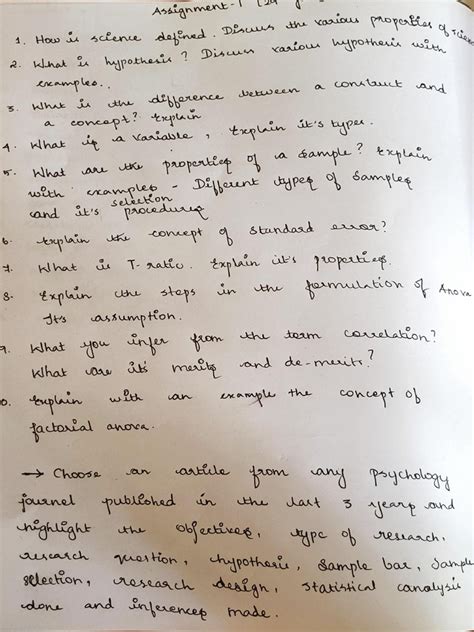 Assignment-1 [29
1. How is science defined. Discuss the various properties of
2. What is hypothesis? Discuss various hypothesis with
examples..
3. What is the difference between a construct and
a concept? Explain
4. What is a variable, Explain it's types.
5. What are the properties of a sample? Explain
with examples - Different types of samples
and it's selection procedures
6. Explain the concept of standard error?
7. What is T-ratio. Explain it's properties.
8. Explain the steps in the formulation of Anova
Its assumption.
9. What you infer from the term correlation?
What are it's merits and de-merits?
0. Explain with an example the concept of
factorial anova.
→ Choose an article from any psychology
journel published in the last 3 years and
highlight the objectives, type of research,
research question, hypothesis, sample bar, sample
selection, research design, statistical analysis
done and inferences made.